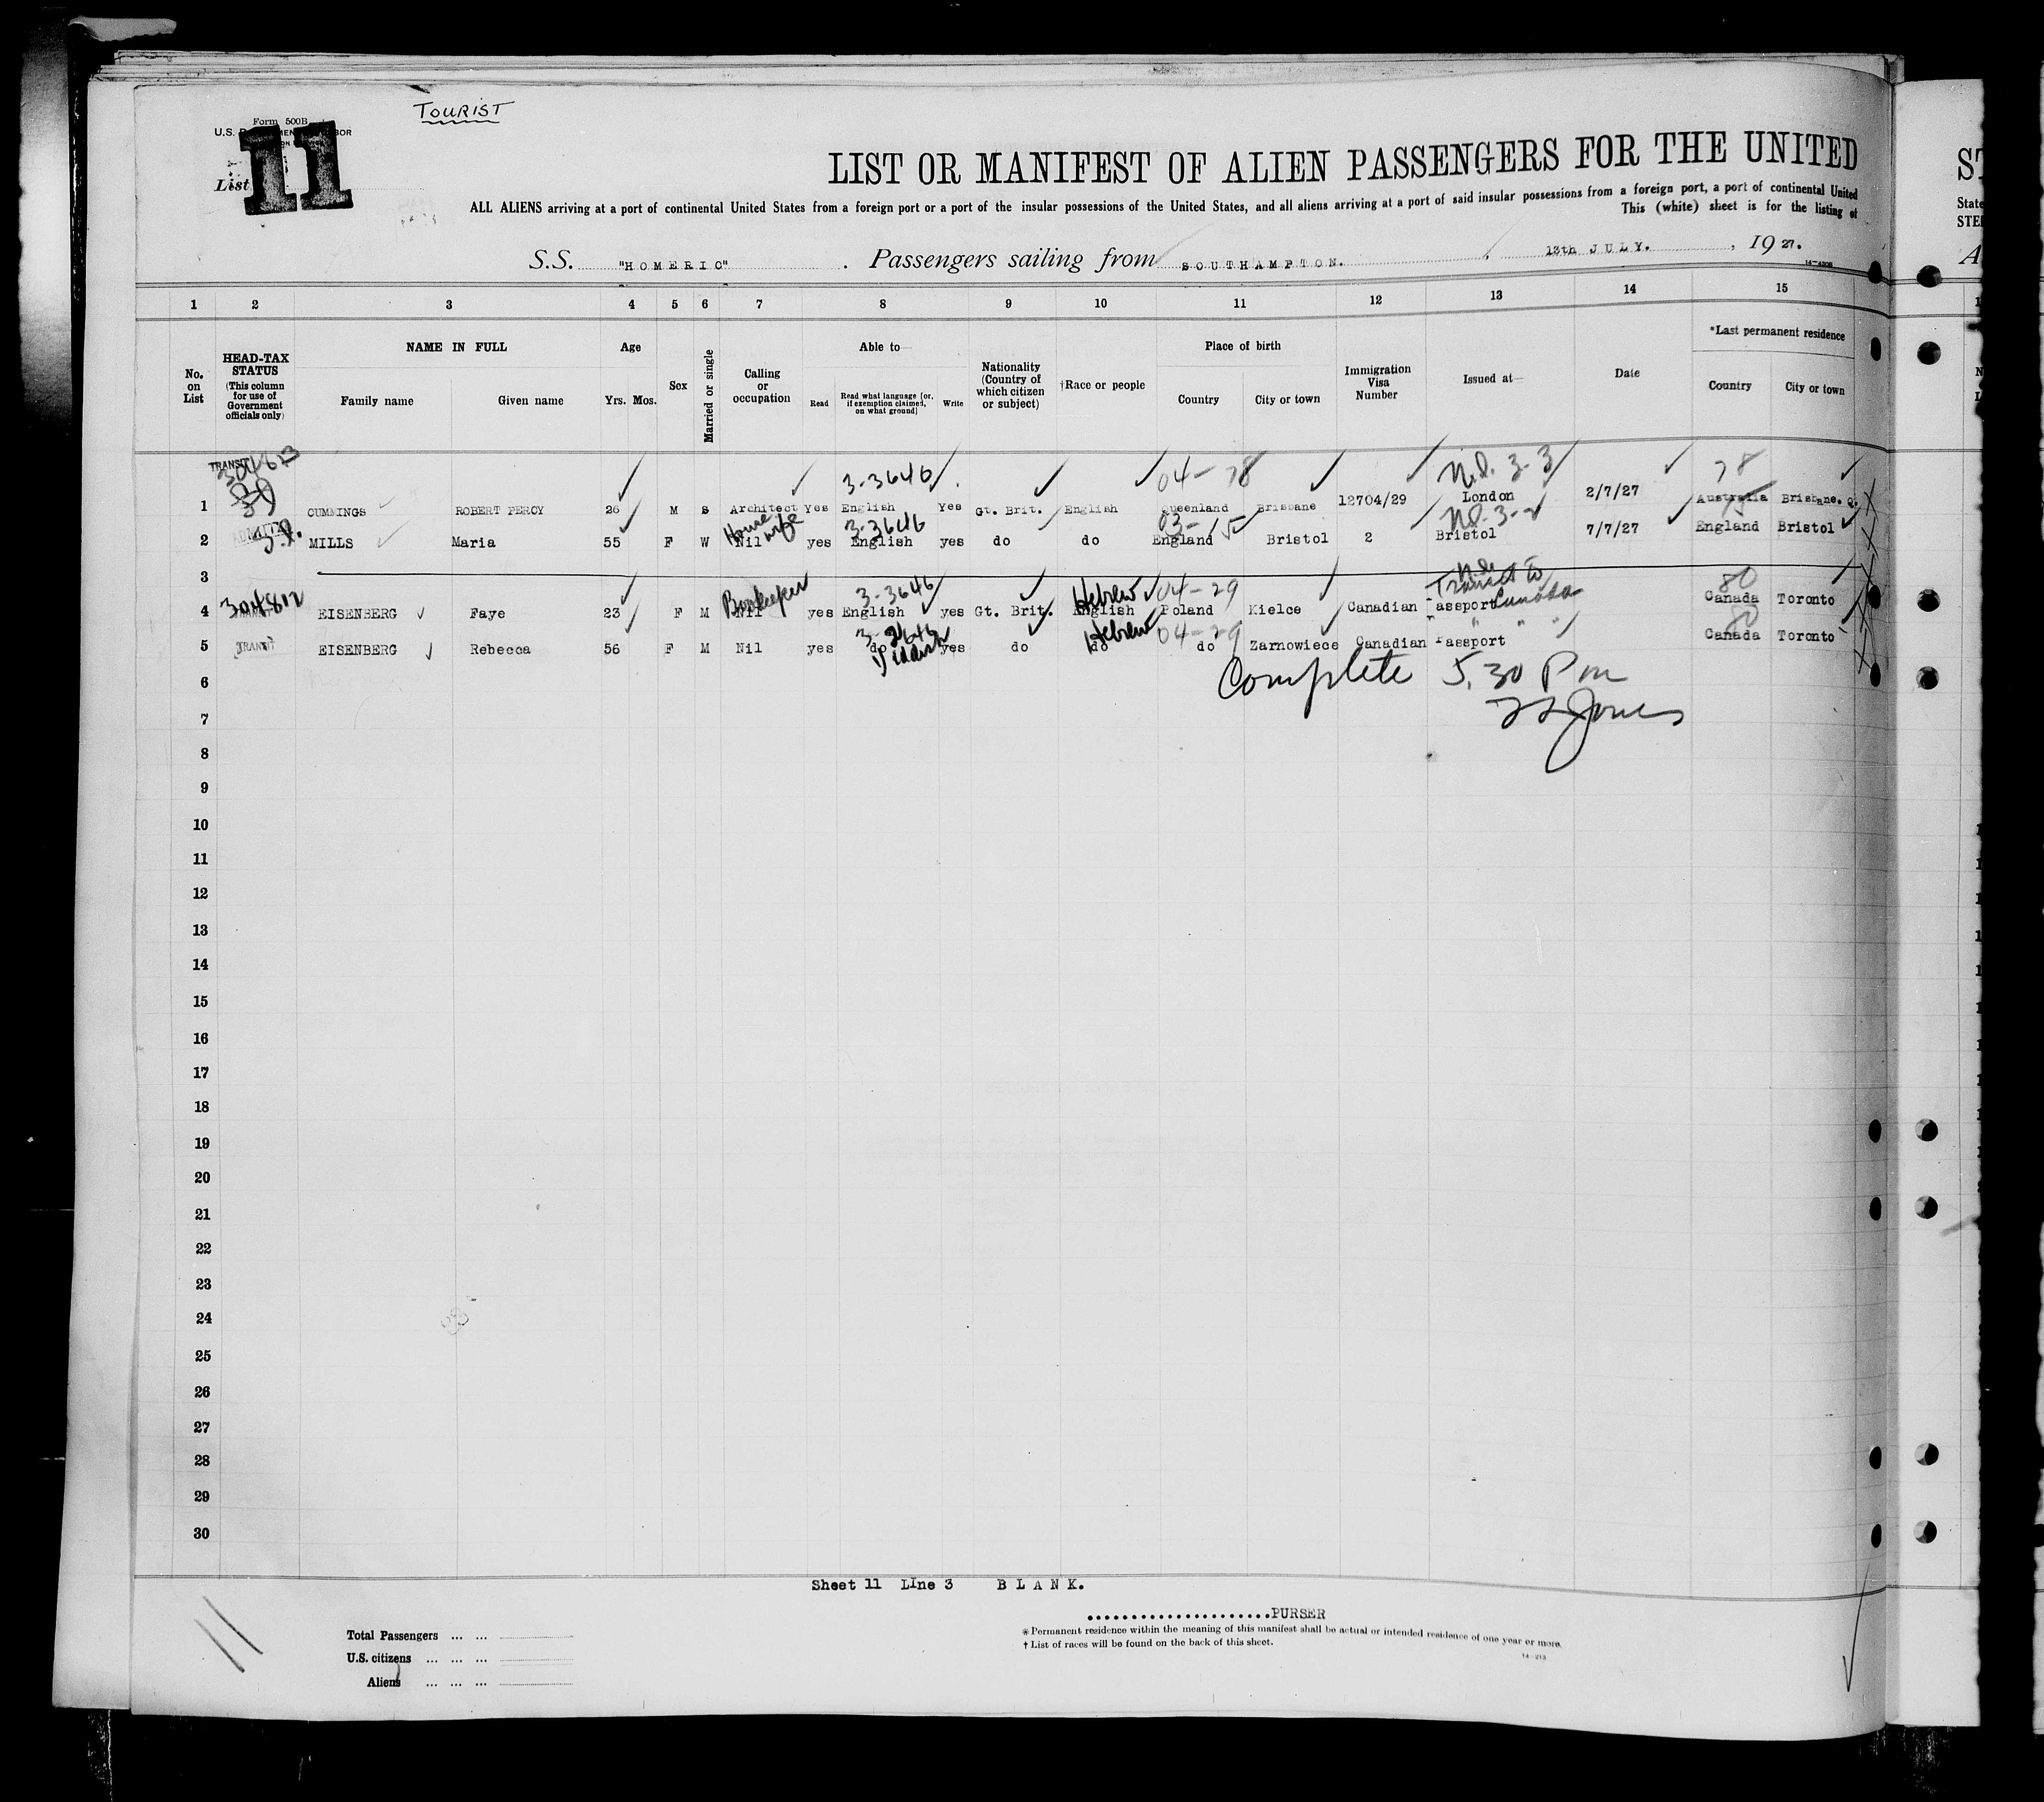 TOURIST
Form 500B
U.S.
List 11
LIST OR MANIFEST OF ALIEN PASSENGERS FOR THE UNITED
ALL ALIENS arriving at a port of continental United States from a foreign port or a port of the insular possessions of the United States, and all aliens arriving at a port of said insular possessions from a foreign port, a port of continental United
This (white) sheet is for the listing of
S.S. "HOMERIC" . Passengers sailing from SOUTHAMPTON. , 13th JULY. , 19 27.
1 2 3 4 5 6 7 8 9 10 11 12 13 14 15
No. on List
HEAD-TAX STATUS (This column for use of Government officials only)
NAME IN FULL
Family name Given name
Age
Yrs. Mos.
Sex
Married or single
Calling or occupation
Able to—
Read Read what language [or, if exemption claimed, on what ground] Write
Nationality (Country of which citizen or subject)
†Race or people
Place of birth
Country City or town
Immigration Visa Number
Issued at—
Date
*Last permanent residence
Country City or town
TRANSIT 3-3646 04-78 78
1 CUMMINGS ROBERT PERCY 26 M S Architect Yes English Yes Gt. Brit. English Queenland Brisbane 12704/29 London 2/7/27 Australia Brisbane. Q.
ADMITTED House wife 3-3646 03-15 15
2 MILLS Maria 55 F W Nil yes English yes do do England Bristol 2 Bristol 7/7/27 England Bristol
3
304812 Bookeeper 3-3646 Hebrew 04-29 Transit to Canada 80
4 EISENBERG Faye 23 F M Nil yes English yes Gt. Brit. English Poland Kielce Canadian Passport Canada Toronto
TRANSIT 3-3646 Yiddish Hebrew 04-29 " " " " 80
5 EISENBERG Rebecca 56 F M Nil yes do yes do do do Zarnowiece Canadian Passport Canada Toronto
Complete 5.30 Pm
Jones
6
7
8
9
10
11
12
13
14
15
16
17
18
19
20
21
22
23
24
25
26
27
28
29
30
Sheet 11 LIne 3 BLANK.
......................PURSER
* Permanent residence within the meaning of this manifest shall be actual or intended residence of one year or more.
† List of races will be found on the back of this sheet.
11
Total Passengers ... ...
U.S. citizens ... ... ...
Aliens ... ... ...